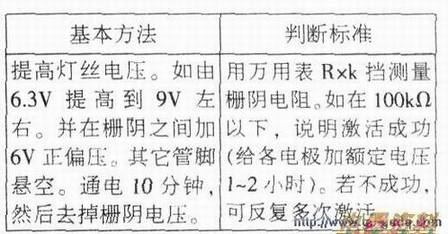 基本方法
判断标准
提高灯丝电压。如由
6.3V 提高到 9V 左
右。并在栅阴之间加
6V 正偏压。其它管脚
悬空。通电 10 分钟，
然后去掉栅阴电压。
用万用表 R×k 挡测量
栅阴电阻。如在 100kΩ
以下，说明激活成功
(给各电极加额定电压
1~2 小时)。若不成功，
可反复多次激活